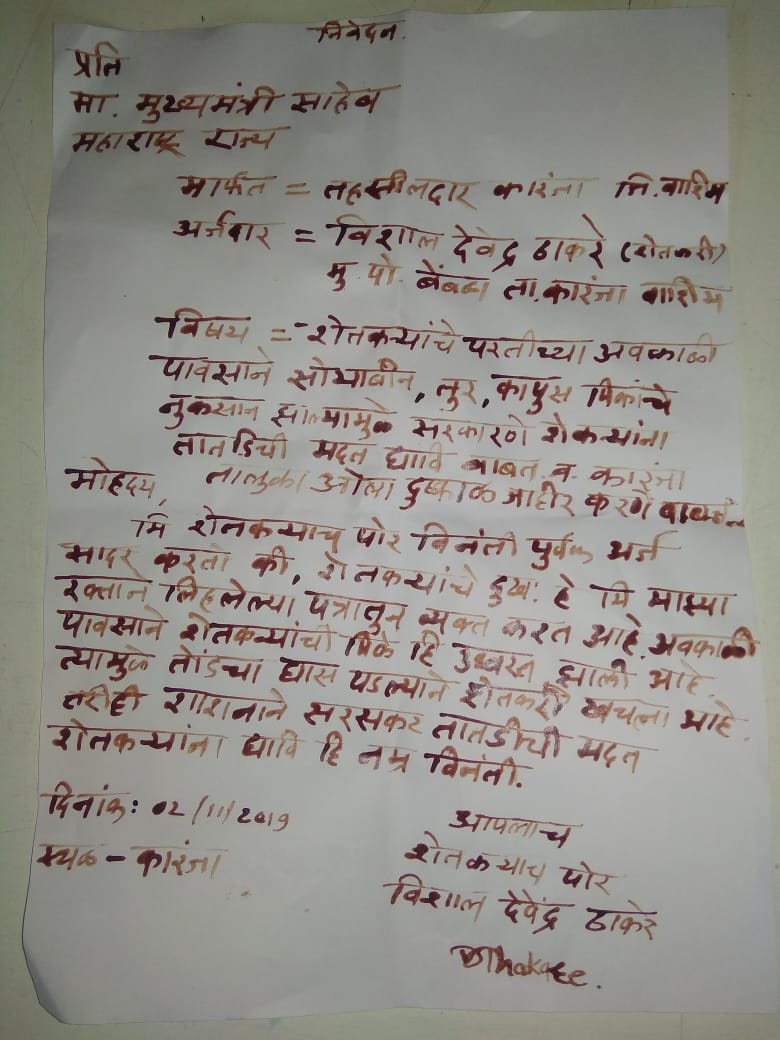 निवेदन.
प्रति
मा. मुख्यमंत्री साहेब
महाराष्ट्र राज्य
मार्फत = तहसीलदार कारंजा जि. वाशिम
अर्जदार = विशाल देवेंद्र ठाकरे (शेतकरी)
मु. पो. ता. कारंजा वाशिम
विषय = शेतकऱ्यांचे परतीच्या अवकाळी
पावसाने सोयाबीन, तुर, कापुस पिकांचे
नुकसान झाल्यामुळे सरकारणे शेकऱ्यांना
तातडिची मदत द्यावि बाबत व कारंजा
तालुका ओला दुष्काळ जाहीर करणे
मोहदय,
मि शेतकऱ्याच पोर विनंती पुर्वक अर्ज
सादर करतो की, शेतकऱ्यांचे दुखः हे मि माझ्या
रक्ताने लिहलेल्या पत्रातुन व्यक्त करत आहे. अवकाळी
पावसाने शेतकऱ्यांची पिके हि उध्वस्त झाली आहे.
त्यामुळे तोंडचा घास पडल्याने शेतकरी खचला आहे.
तरीही शाशनाने सरसकट तातडीची मदत
शेतकऱ्यांना द्यावि हि नम्र विनंती.
दिनांक: 02/11/2019
स्थळ - कारंजा
आपलाच
शेतकऱ्याच पोर
विशाल देवेंद्र ठाकरे
VThakare.